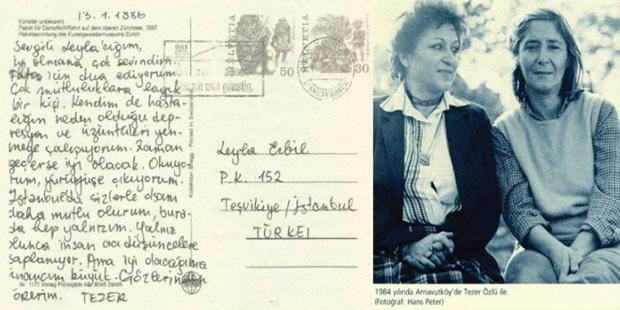 13.1.1986
Künstler unbekannt
Plakat für Dampfschifffahrt auf dem oberen Zürichsee, 1897
Plakatsammlung des Kunstgewerbemuseums Zürich
Sevgili Leyla'cığım,
iyi olmana çok sevindim.
için dua ediyorum.
Çok mutluluklara layık
bir kişi. Kendim de hasta-
lığın neden olduğu dep-
resyon ve üzüntüleri yen-
meye çalışıyorum. Zaman
geçerse iyi olacak. Okuyo-
rum, yürüyüşe çıkıyorum.
İstanbul'da sizlerle olsam
daha mutlu olurum, bura-
da hep yalnızım. Yalnız
olunca insan acı düşüncelere
saplanıyor. Ama iyi olacağıma
inancım büyük. Gözlerinden
öperim. TEZER
Printed in Switzerland
HELVETIA
50
HELVETIA
30
Leyla Erbil
P.K. 152
Teşvikiye/İstanbul
TÜRKEI
1984 yılında Arnavutköy'de Tezer Özlü ile.
(Fotoğraf: Hans Peter)